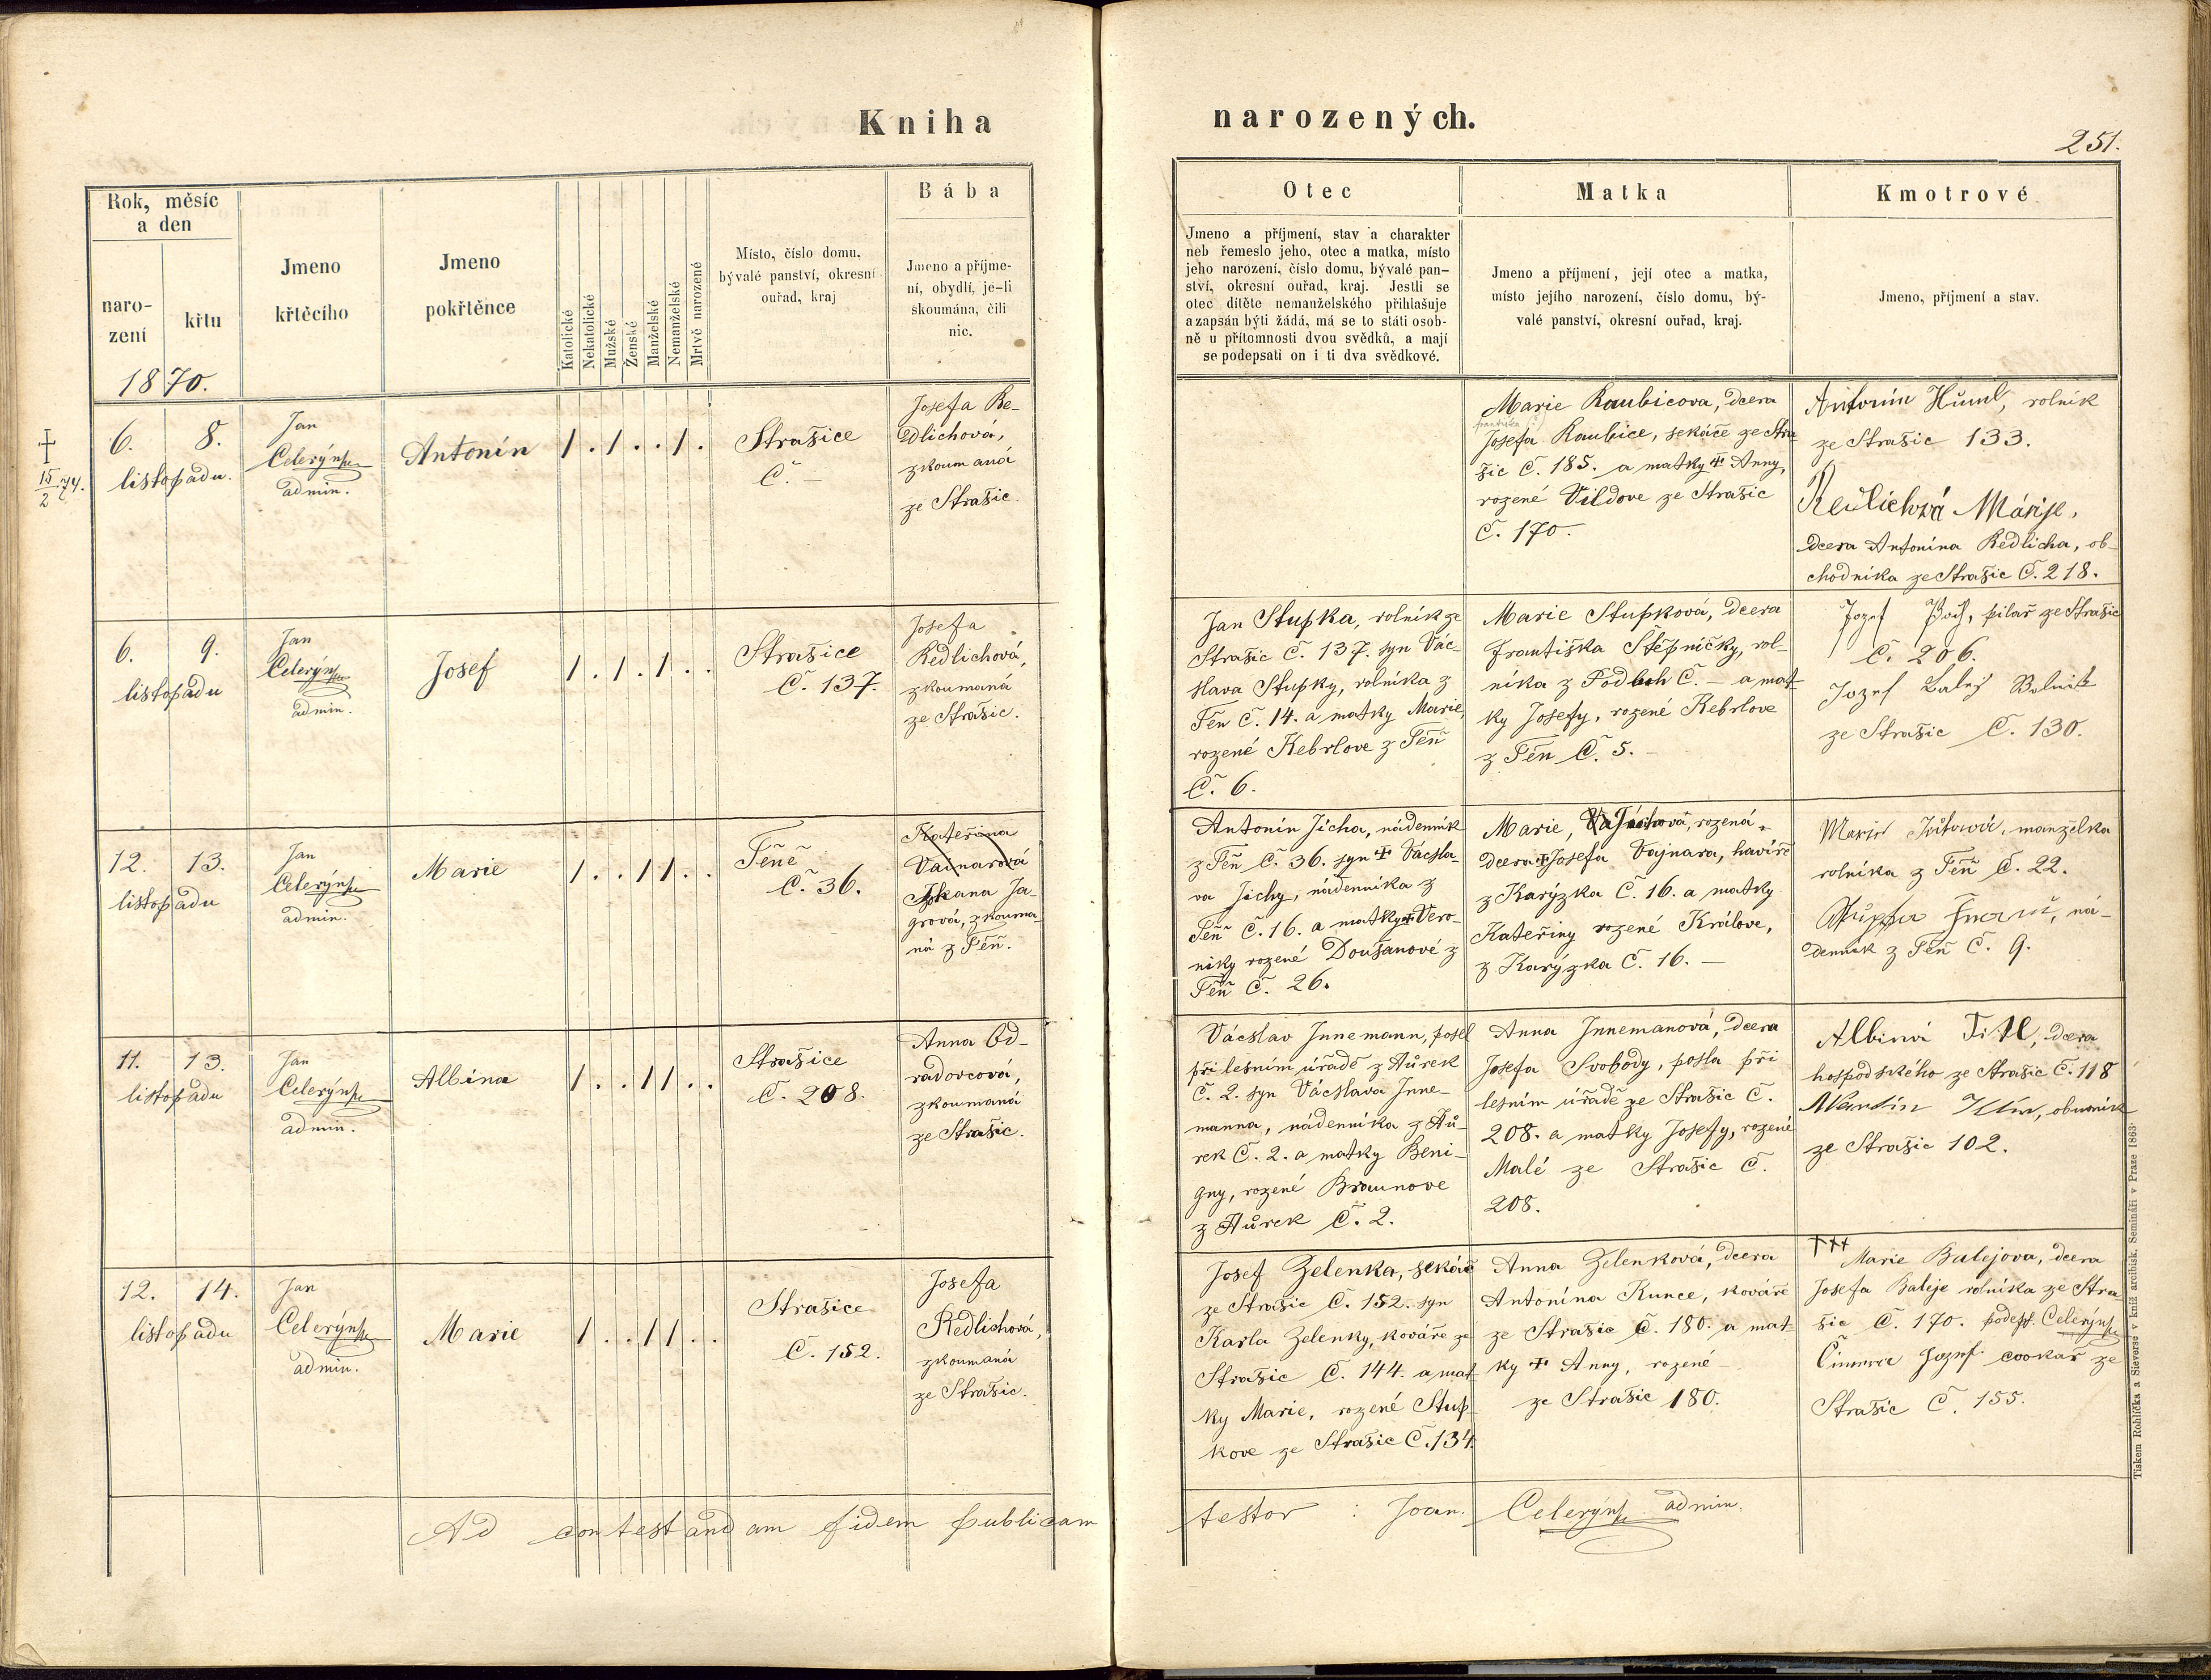 Kniha narozených.
251.
Rok, měsíc
a den
naro-
zení
křtu
Jmeno
křtěcího
Jmeno
pokřtěnce
Katolické
Nekatolické
Mužské
Ženské
Manželské
Nemanželské
Mrtvě narozené
Místo, číslo domu,
bývalé panství, okresní
ouřad, kraj
Bába
Jmeno a příjme-
ní, obydlí, je-li
skoumána, čili
nic.
Otec
Jmeno a příjmení, stav a charakter
neb řemeslo jeho, otec a matka, místo
jeho narození, číslo domu, bývalé pan-
ství, okresní ouřad, kraj. Jestli se
otec dítěte nemanželského přihlašuje
a zapsán býti žádá, má se to státi osob-
ně u přítomnosti dvou svědků, a mají
se podepsati on i ti dva svědkové.
Matka
Jmeno a příjmení, její otec a matka,
místo jejího narození, číslo domu, bý-
valé panství, okresní ouřad, kraj.
Kmotrové
Jmeno, příjmení a stav.
1870.
† 15/2 74.
6. 8.
listopadu.
Jan
Celerýn
admin.
Antonín
1 . 1 . . 1 .
Strašice
Č. –
Josefa Re-
dlichová,
zkoumaná
ze Strašic.
Marie Kaubicova, dcera
františka
Josefa Kaubice, sekáče ze Stra
šic Č. 185. a matky † Anny,
rozené Vildove ze Strašic
Č. 170.
Antonín Hůml, rolník
ze Strašic 133.
Redlichová Márije,
dcera Antonína Redlicha, ob-
chodníka ze Strašic Č. 218.
6. 9.
listopadu
Jan
Celerýn
admin.
Josef
1 . 1 . 1 . .
Strašice
Č. 137.
Josefa
Redlichová,
zkoumaná
ze Strašic.
Jan Stupka, rolník ze
Strašic Č. 137. syn Vác-
slava Stupky, rolníka z
Těn Č. 14. a matky Marie,
rozené Kebrlove z Těň
Č. 6.
Marie Stupková, dcera
Františka Štěpničky, rol-
níka z Podluh Č. – a mat-
ky Josefy, rozené Kebrlove
z Těn Č. 5. –
Jozef pilař ze Strašic
Č. 206.
Jozef Balej Rolnik
ze Strašic Č. 130.
12. 13.
listopadu
Jan
Celerýn
admin.
Marie
1 . . 1 1 . .
Těně
Č. 36.
Kateřina
Vainarová
Johana Ja-
grová, zkouma-
ná z Těň.
Antonín Jícha, nádenník
z Těň Č. 36. syn † Václa-
va Jíchy, nádenníka z
Těň Č. 16. a matky † Vero-
niky rozené Doušanové z
Těň Č. 26.
Marie, Jíchová, rozená
dcera † Josefa Vajnara, havíře
z Karýzka Č. 16. a matky
Kateřiny rozené Králove,
z Karýzka Č. 16. –
manželka
rolníka z Těň Č. 22.
ná-
denník z Těň Č. 9.
11. 13.
listopadu
Jan
Celerýn
admin.
Albína
1 . . 1 1 . .
Strašice
Č. 208.
Anna Od-
radovcová,
zkoumaná
ze Strašic.
Vácslav Innemann, posel
při lesním úřadě z Hůrek
Č. 2. syn Vácslava Inne-
manna, nádenníka z Hů-
rek Č. 2. a matky Beni-
gny, rozené Braunove
z Hůrek Č. 2.
Anna Innemanová, dcera
Josefa Svobody, posla při
lesním úřadě ze Strašic Č.
208. a matky Josefy, rozené
Malé ze Strašic Č.
208.
Albina Titl, dcera
hospodského ze Strašic Č. 118
Martin Klír, obuvník
ze Strašic 102.
12. 14.
listopadu
Jan
Celerýn
admin.
Marie
1 . . 1 1 . .
Strašice
Č. 152.
Josefa
Redlichová,
zkoumaná
ze Strašic.
Josef Zelenka, sekáč
ze Strašic Č. 152. syn
Karla Zelenky, kováře ze
Strašic Č. 144. a mat-
ky Marie, rozené Stup-
kove ze Strašic Č. 134.
Anna Zelenková, dcera
Antonína Kunce, kováře
ze Strašic Č. 180. a mat-
ky † Anny, rozené –
ze Strašic 180.
†††
Marie Balejova, dcera
Josefa Baleje rolníka ze Stra-
šic Č. 170. podeps. Celerýn
Jozef cvokař ze
Strašic Č. 155.
Ad contestandam fidem publicam testor : Joan. Celerýn admin.
Tiskem Rohlíčka a Sieverse v kníž. arcibisk. Semináři v Praze 1863.